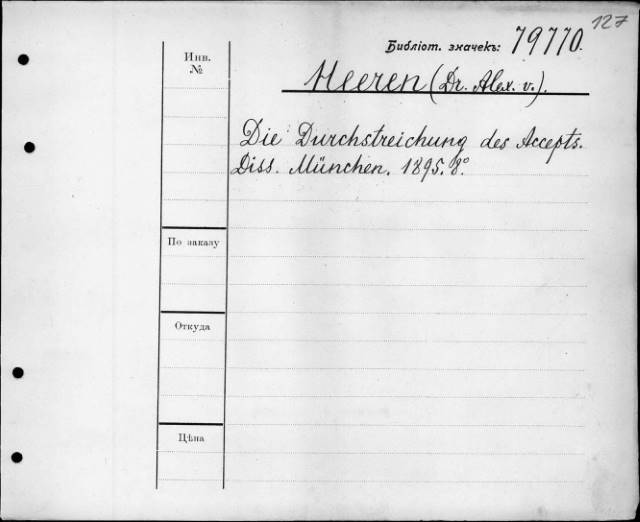 127
Библіот. значекъ: 79770.
Инв.
№
Heeren (Dr. Alex. v.).
Die Durchstreichung des Accepts.
Diss. München. 1895. 8°
По заказу
Откуда
Цѣна